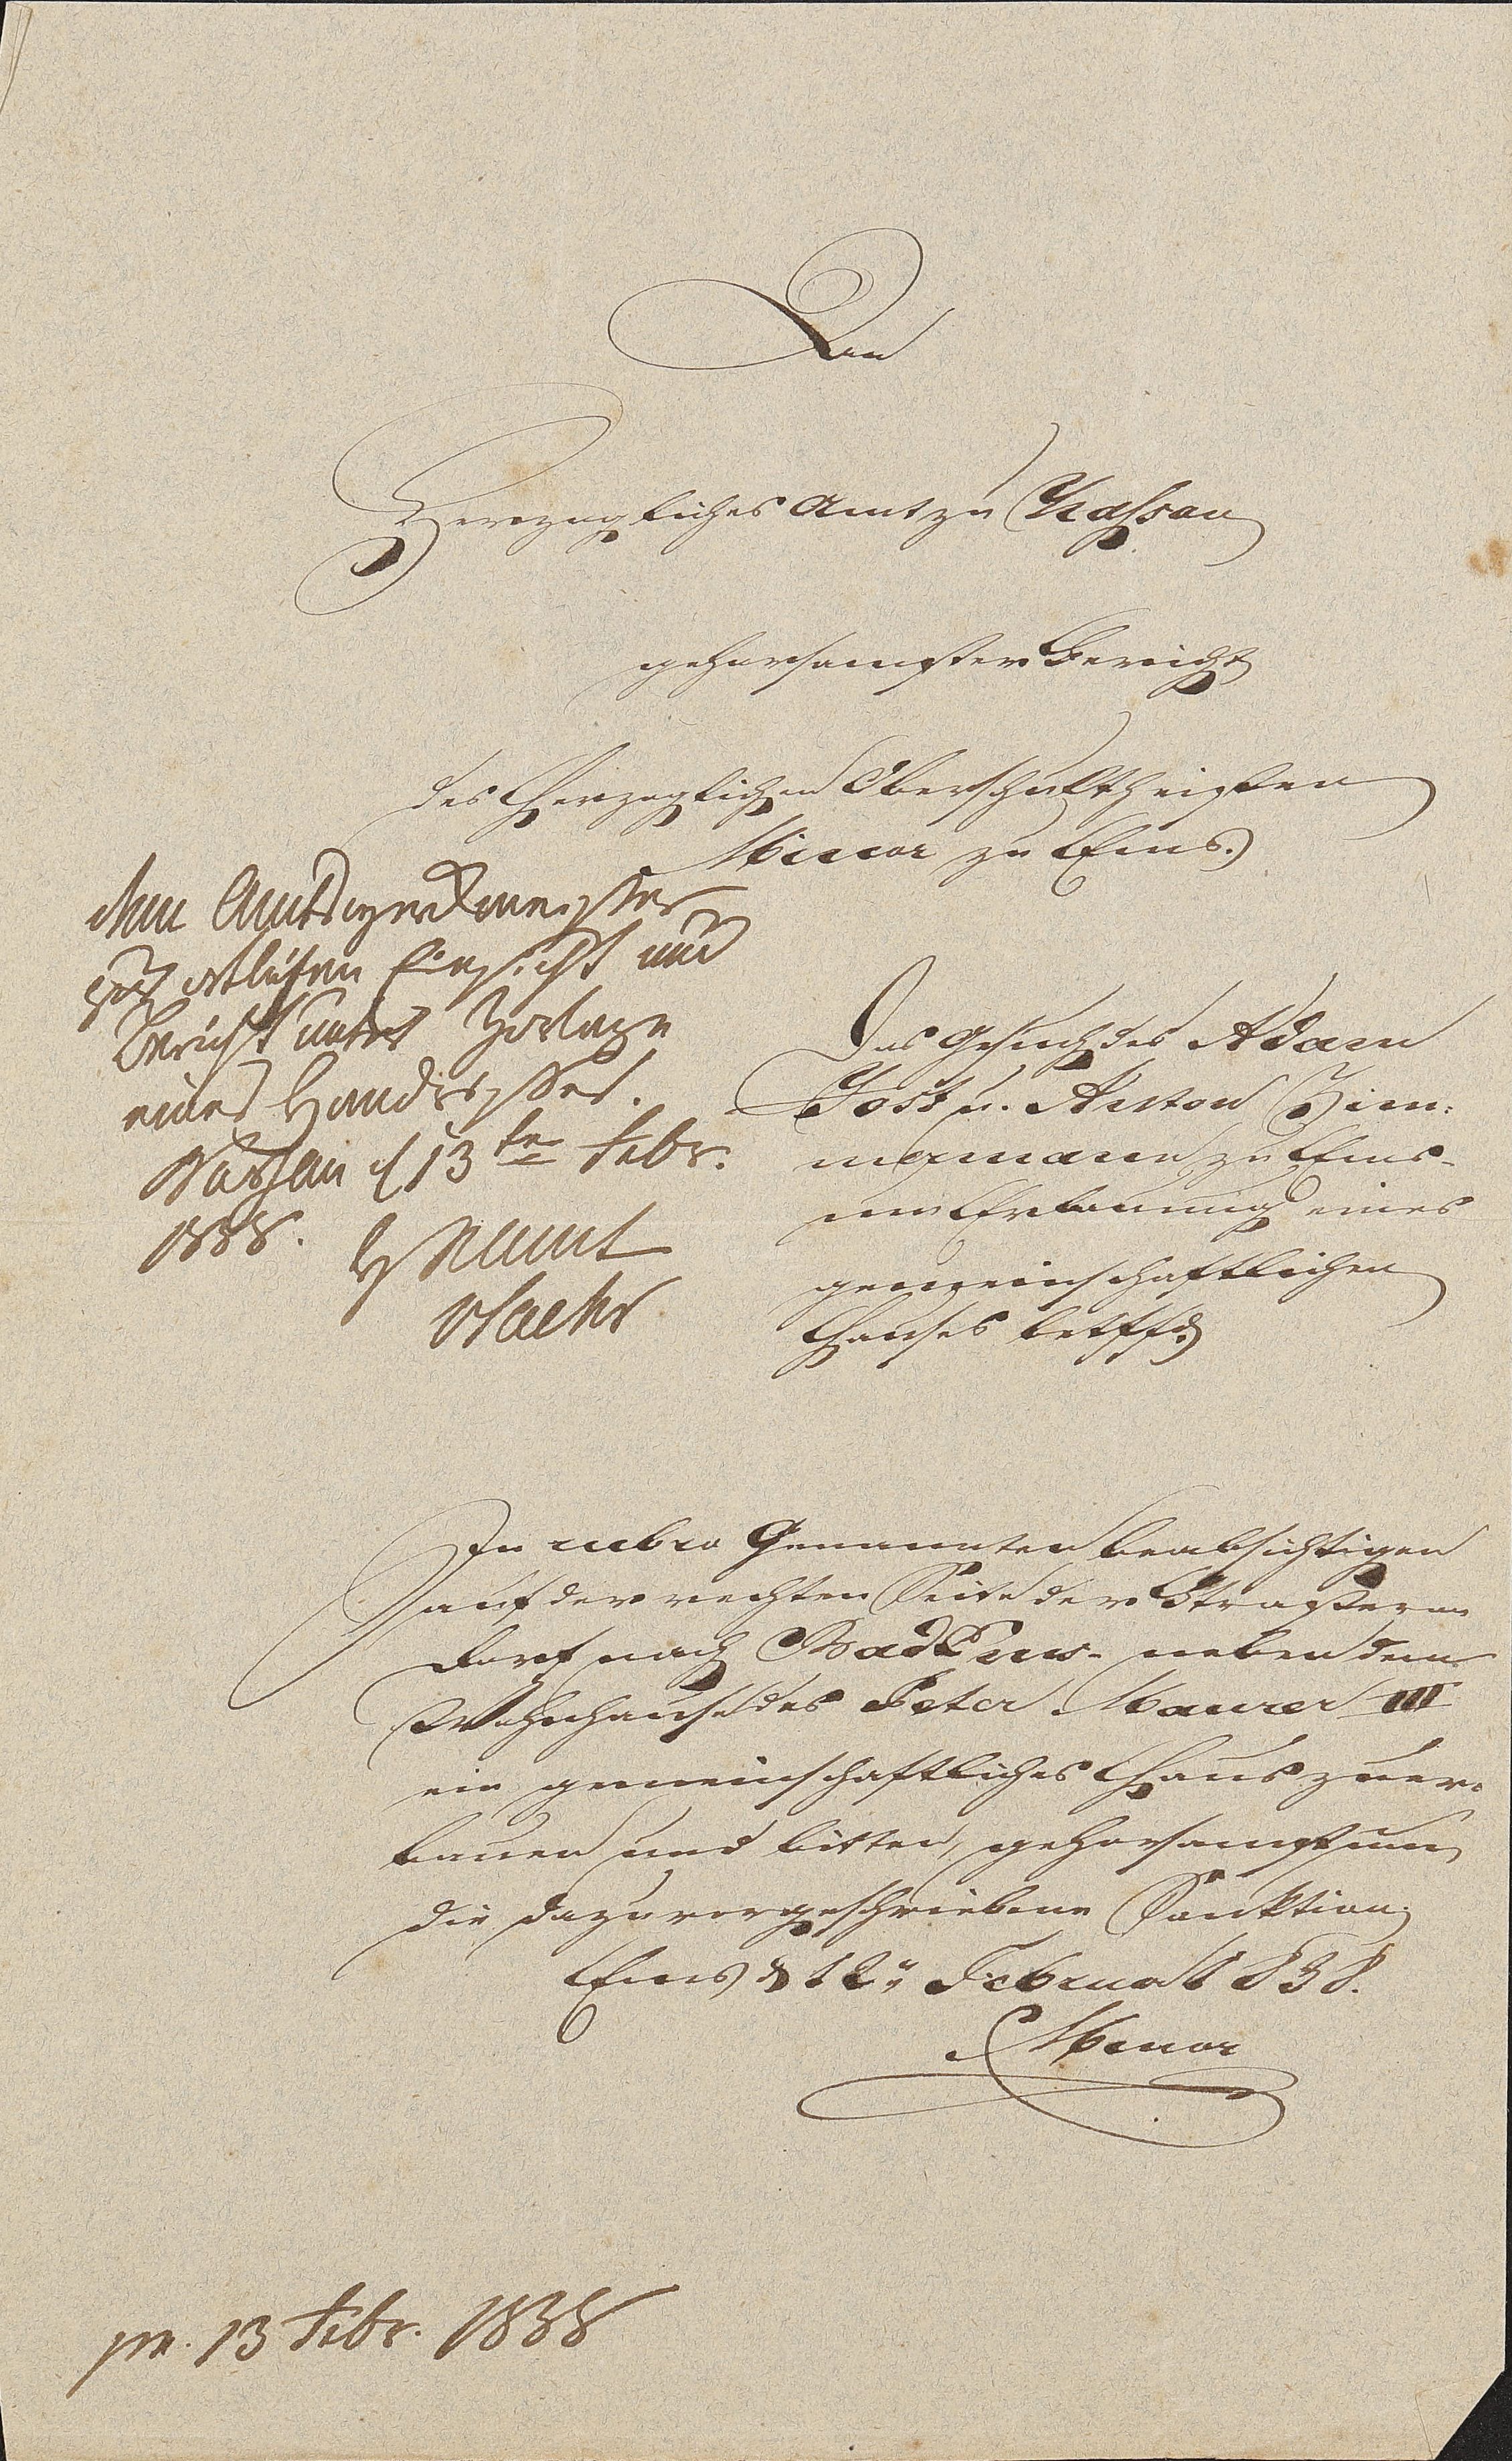 An
Herzogliches Amt zu Nassau
gehorsamster Bericht
des Herzoglichen Oberschultheißen
Minor zu Ems.
Dem Amtswerkmeister
zur örtlichen Einsicht und
Bericht unter Vorlage
eines Handrisses.
Nassau d 13ten Febr.
1838.
HNAmt
Das Gesuch des Adam
Jost u. Anton Zim-
mermann zu Ems
um Erbauung eines
gemeinschaftlichen
Hauses betffd
In rubro Genannten beabsichtigen
auf der rechten Seite der Straße von
Dorf nach Bad Ems neben dem
Wohnhause des Peter Maurer III
ein gemeinschaftliches Haus zu er-
bauen und bitten gehorsamst um
die dazu vorgeschriebene Sanktion.
Ems d 12n Februar 1838.
Minor
pr. 13 Febr. 1838